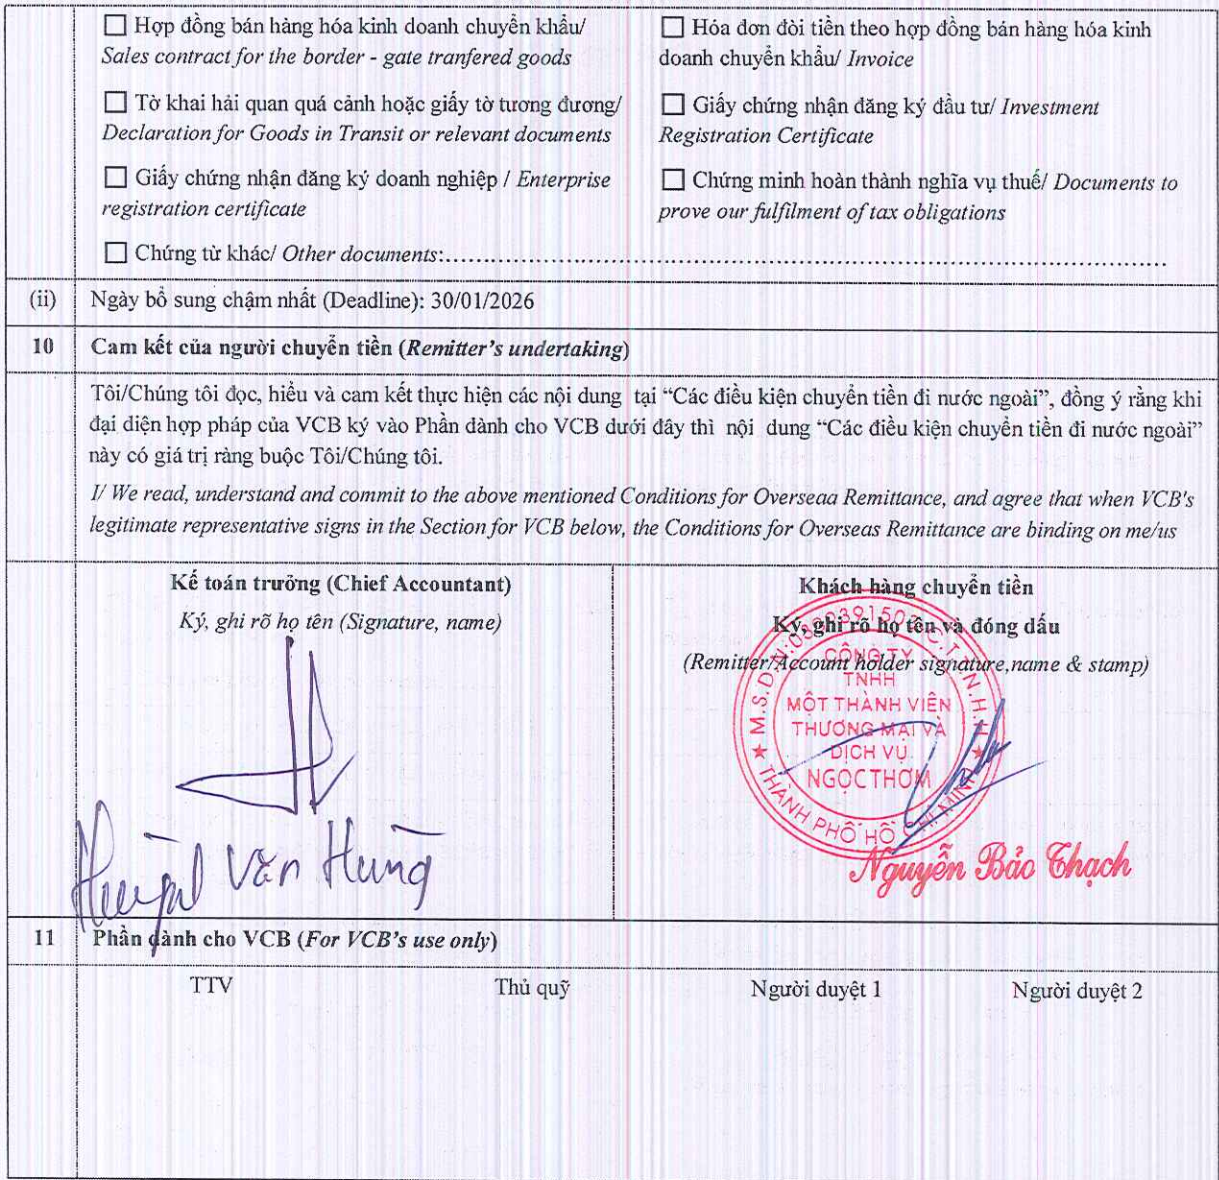 ☐ Hợp đồng bán hàng hóa kinh doanh chuyển khẩu/
Sales contract for the border - gate tranfered goods
☐ Hóa đơn đòi tiền theo hợp đồng bán hàng hóa kinh
doanh chuyển khẩu/ Invoice
☐ Tờ khai hải quan quá cảnh hoặc giấy tờ tương đương/
Declaration for Goods in Transit or relevant documents
☐ Giấy chứng nhận đăng ký đầu tư/ Investment
Registration Certificate
☐ Giấy chứng nhận đăng ký doanh nghiệp / Enterprise
registration certificate
☐ Chứng minh hoàn thành nghĩa vụ thuế/ Documents to
prove our fulfilment of tax obligations
☐ Chứng từ khác/ Other documents:..........
(ii) Ngày bổ sung chậm nhất (Deadline): 30/01/2026
10 Cam kết của người chuyển tiền (Remitter's undertaking)
Tôi/Chúng tôi đọc, hiểu và cam kết thực hiện các nội dung tại “Các điều kiện chuyển tiền đi nước ngoài”, đồng ý rằng khi
đại diện hợp pháp của VCB ký vào Phần dành cho VCB dưới đây thì nội dung “Các điều kiện chuyển tiền đi nước ngoài”
này có giá trị ràng buộc Tôi/Chúng tôi.
I/ We read, understand and commit to the above mentioned Conditions for Overseaa Remittance, and agree that when VCB's
legitimate representative signs in the Section for VCB below, the Conditions for Overseas Remittance are binding on me/us
Kế toán trưởng (Chief Accountant)
Ký, ghi rõ họ tên (Signature, name)
Văn Hùng
Khách hàng chuyển tiền
Ký, ghi rõ họ tên và đóng dấu
(Remitter/Account holder signature,name & stamp)
CÔNG TY
TNHH
MỘT THÀNH VIÊN
THƯƠNG MẠI VÀ
DỊCH VỤ
NGỌC THƠM
THÀNH PHỐ HỒ CHÍ MINH
Nguyễn Bảo Thạch
11 Phần dành cho VCB (For VCB's use only)
TTV Thủ quỹ Người duyệt 1 Người duyệt 2